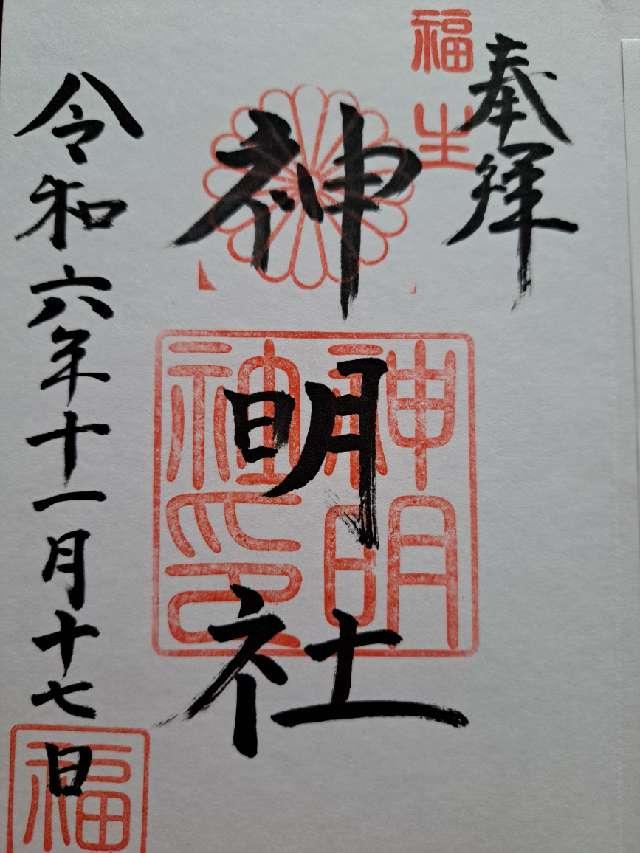 奉拝
福生
神明社
神明社印
令和六年十一月十七日
福